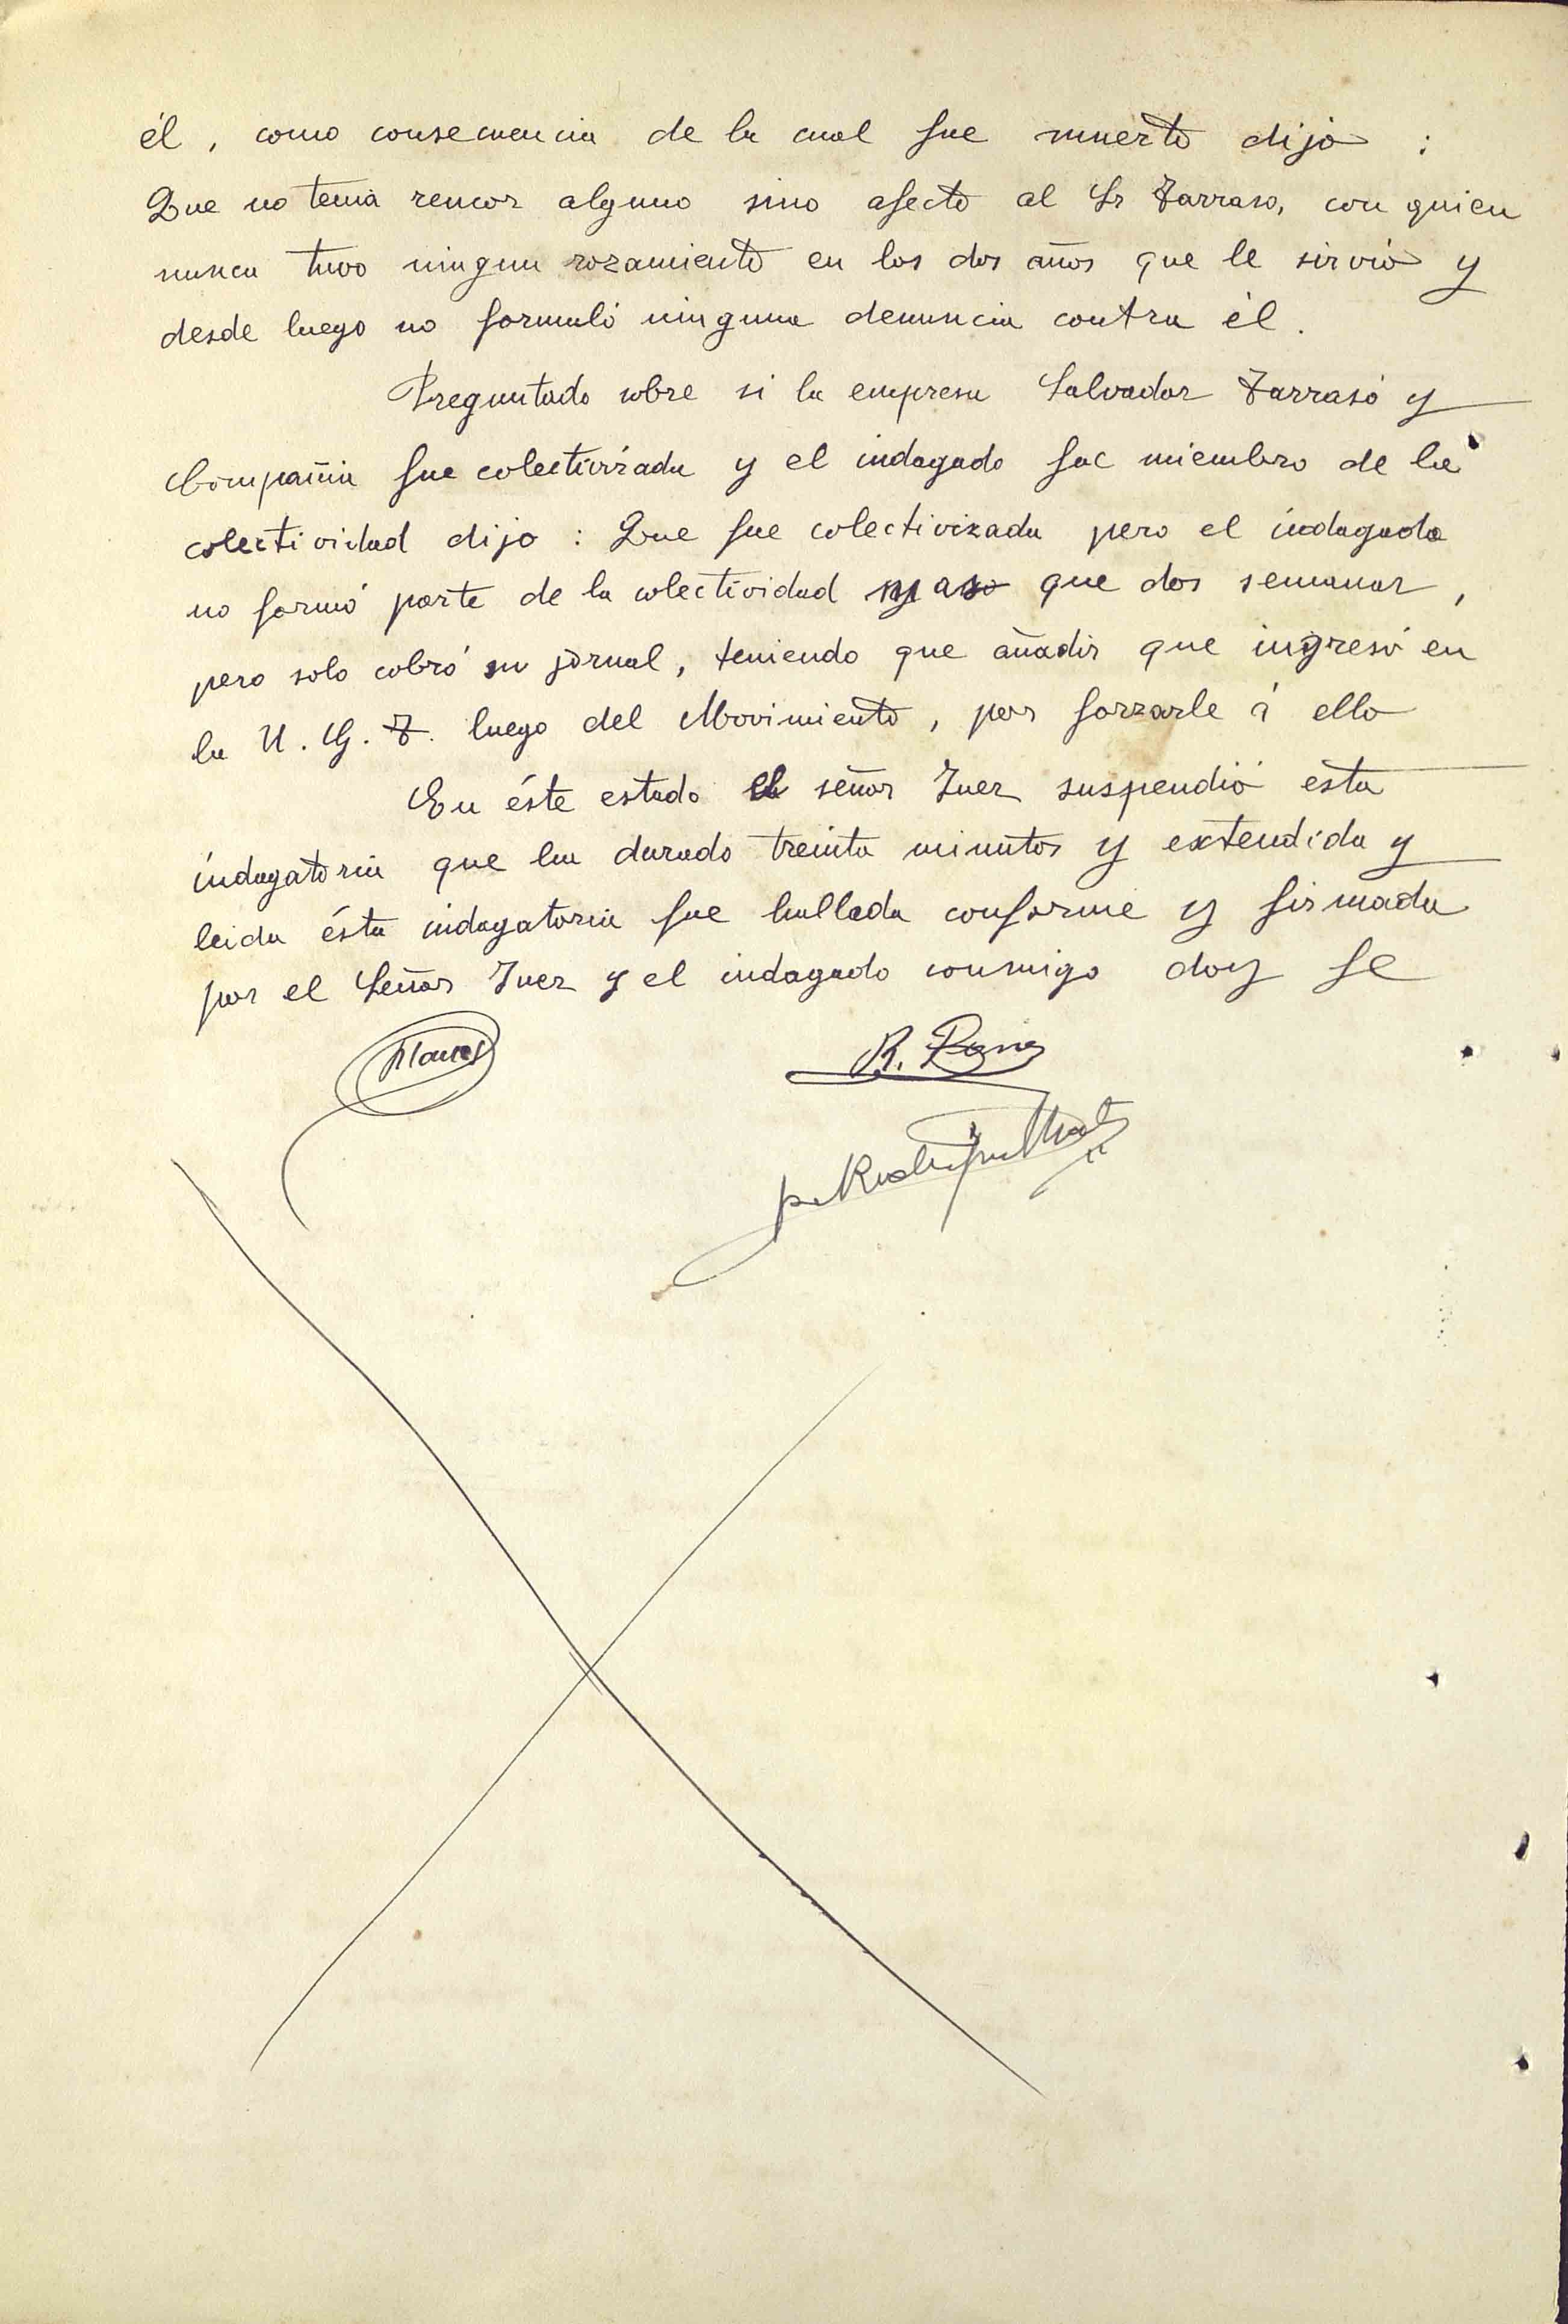 él, como consecuencia de la cual fue muerto dijo :
Que no tenia rencor alguno sino afecto al Sr Tarraso, con quien
nunca tuvo ningun rozamiento en los dos años que le sirvió y
desde luego no formuló ninguna denuncia contra él.
Preguntado sobre si la empresa Salvador Tarrasó y
Compañia fue colectivizada y el indagado fue miembro de la
colectividad dijo : Que fue colectivizada pero el indagado
no formó parte de la colectividad mas que dos semanas,
pero solo cobró su jornal, teniendo que añadir que ingresó en
la U. G. T. luego del Movimiento, por forzarle á ello
En éste estado el señor Juez suspendió esta
indagatoria que ha durado treinta minutos y extendida y
leida ésta indagatoria fue hallada conforme y firmada
por el Señor Juez y el indagado conmigo doy fe
R.